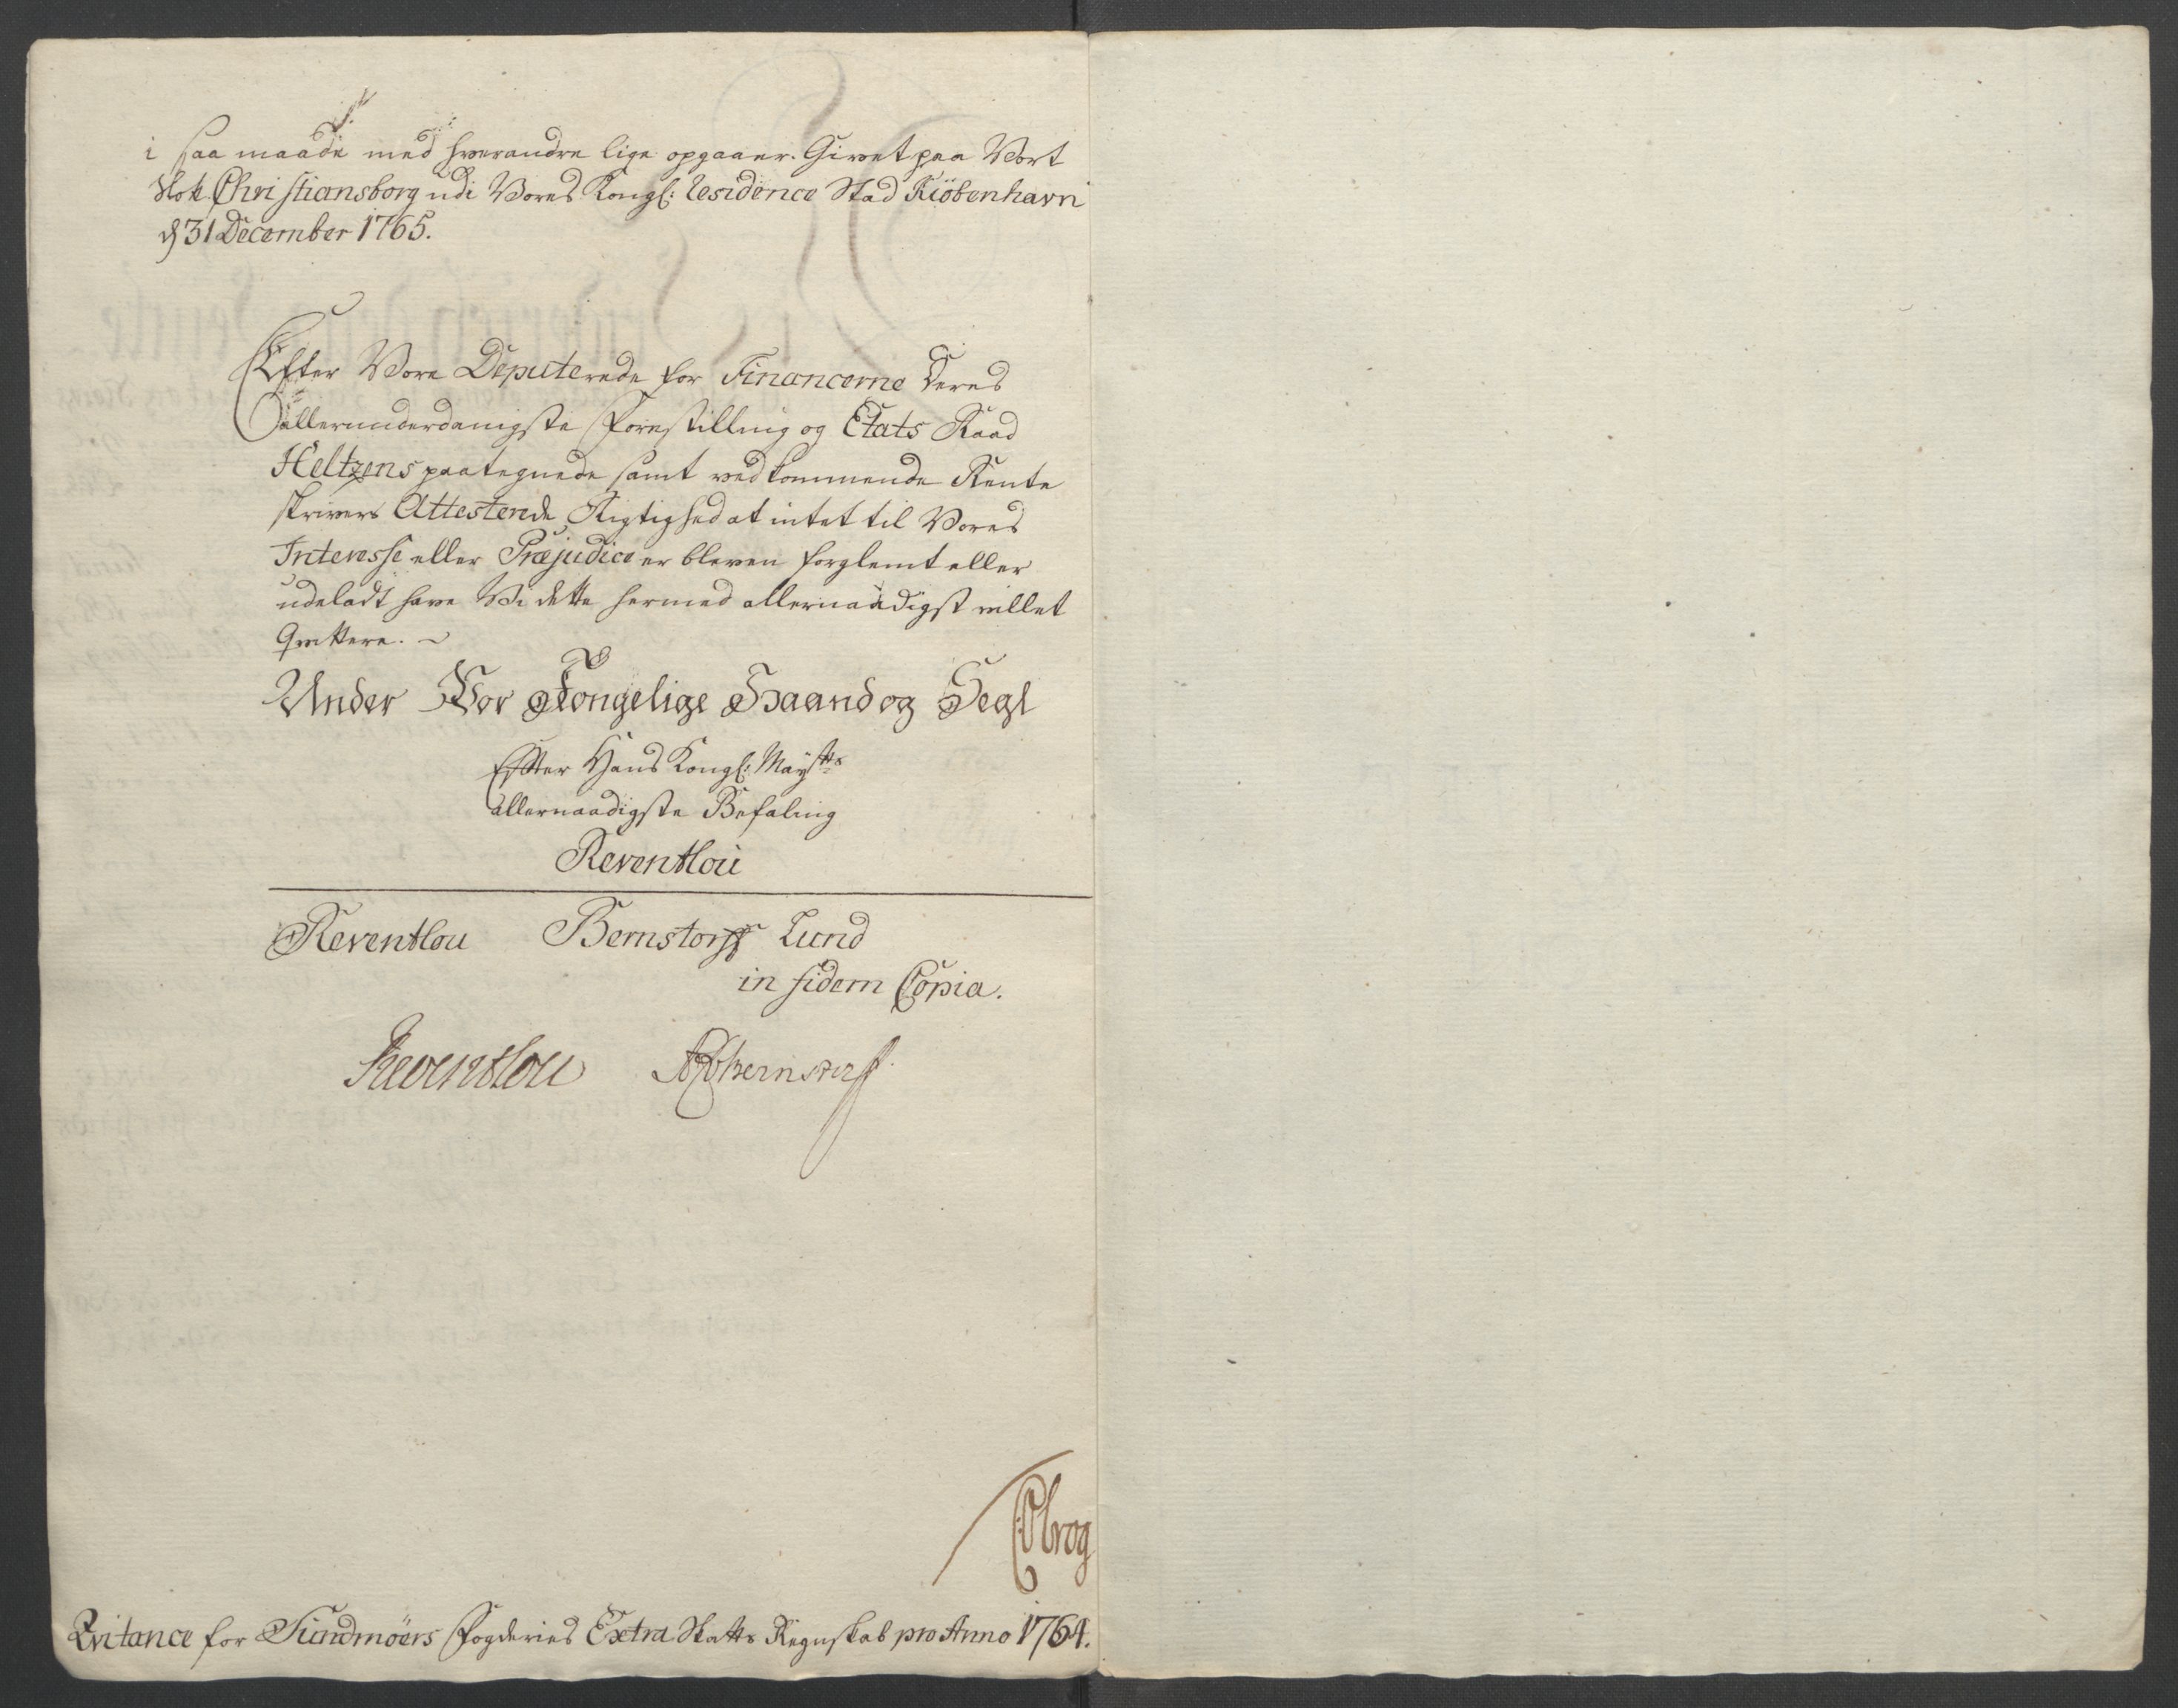 i saa maade med hverandre lige opgaaer. Givet paa Vort
Slot Christiansborg udi Vores Kongl: Residence Stad Kiöbenhavn
d 31 December 1765.
Efter Vore Deputerede for Financerne Deres
allerunderdanigste Forestilling og Etats Raad
Heltzens paategnede samt vedkommende Rente
skrivers Attesterede Rigtighed at intet til Vores
Interesse eller Præjudice er bleven forglemt eller
udeladt have Vi dette hermed allernaadigst villet
Qvittere.
Under Vor Kongelige Haand og Segl
Effter Hans Kongl: Maysts
allernaadigste Befaling
Reventlou
Reventlou Bernstorff Lund
in fidem Copia.
Reventlou Bernstorff
Qvitance for Sundmöers Fogderies Extra Skatts Regnskab pro Anno 1764.